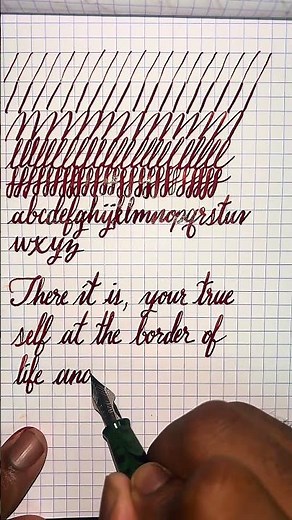 abcdefghijklmnopqrstuv
wxyz
There it is, your true
self at the border of
life and